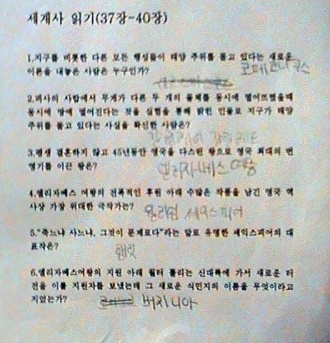 세계사 읽기(37장-40장)
1.지구를 비롯한 다른 모든 행성들이 태양 주위를 돌고 있다는 새로운
이론을 내놓은 사람은 누구인가?
코페르니쿠스
2.피사의 사탑에서 무게가 다른 두 개의 물체를 동시에 떨어뜨렸을때
동시에 땅에 떨어진다는 것을 실험을 통해 밝힌 인물로 지구가 태양
주위를 돌고 있다는 사실을 확신한 사람은?
갈릴레이
3.평생 결혼하지 않고 45년동안 영국을 다스린 왕으로 영국 최대의 번
영기를 이끈 왕은?
엘리자베스 여왕
4.엘리자베스 여왕의 전폭적인 후원 아래 수많은 작품을 남긴 영국 역
사상 가장 위대한 극작가는?
윌리엄 셰익스피어
5."죽느냐 사느냐, 그것이 문제로다"라는 말로 유명한 셰익스피어의 대
표작은?
햄릿
6.엘리자베스여왕의 지원 아래 월터 롤리는 신대륙에 가서 새로운 터
전을 이룰 지원자를 보냈는데 그 새로운 식민지의 이름을 무엇이라고
지었는가?
버지니아